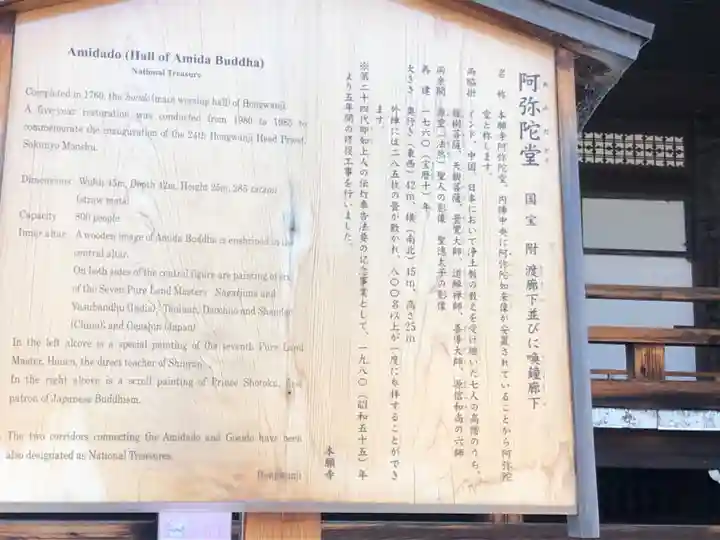 Amidado (Hall of Amida Buddha)
National Treasure
Completed in 1760, the (main worship hall) of Hongwanji.
A five-year restoration was conducted from 1980 to 1985 to
commemorate the inauguration of the 24th Hongwanji Head Priest,
Sokunyo Monshu.
Dimensions: Width 45m, Depth 42m, Height 25m, 285 tatami
(straw mats)
Capacity: 800 people
Inner altar: A wooden image of Amida Buddha is enshrined in the
central altar.
On both sides of the central figure are painting of six
of the Seven Pure Land Masters: Nagarjuna and
Vasubandhu (India), T'anluan, Daochuo and Shandao
(China) and Genshin (Japan)
In the left alcove is a special painting of the seventh Pure Land
Master, Honen, the direct teacher of Shinran.
In the right alcove is a scroll painting of Prince Shotoku, first
patron of Japanese Buddhism.
The two corridors connecting the Amidado and Goeido have been
also designated as National Treasures.
Hongwanji
阿弥陀堂 国宝 附 渡廊下並びに喚鐘廊下
あみだどう
名称 本願寺阿弥陀堂。内陣中央に阿弥陀如来像が安置されていることから阿弥陀
堂と称します。
両脇壇 インド、中国、日本において浄土教の教えを受け継いだ七人の高僧のうち、
龍樹菩薩、天親菩薩、曇鸞大師、道綽禅師、善導大師、源信和尚の六師
両余間 源空(法然)聖人の影像 聖徳太子の影像
再建 一七六〇(宝暦十)年
大きさ 奥行き(東西)42m、横(南北)45m、高さ25m
外陣には二八五枚の畳が敷かれ、八〇〇名以上が一度に参拝することができ
ます。
※第二十四代即如上人の伝灯奉告法要の記念事業として、一九八〇(昭和五十五)年
より五年間の修復工事を行いました。
本願寺